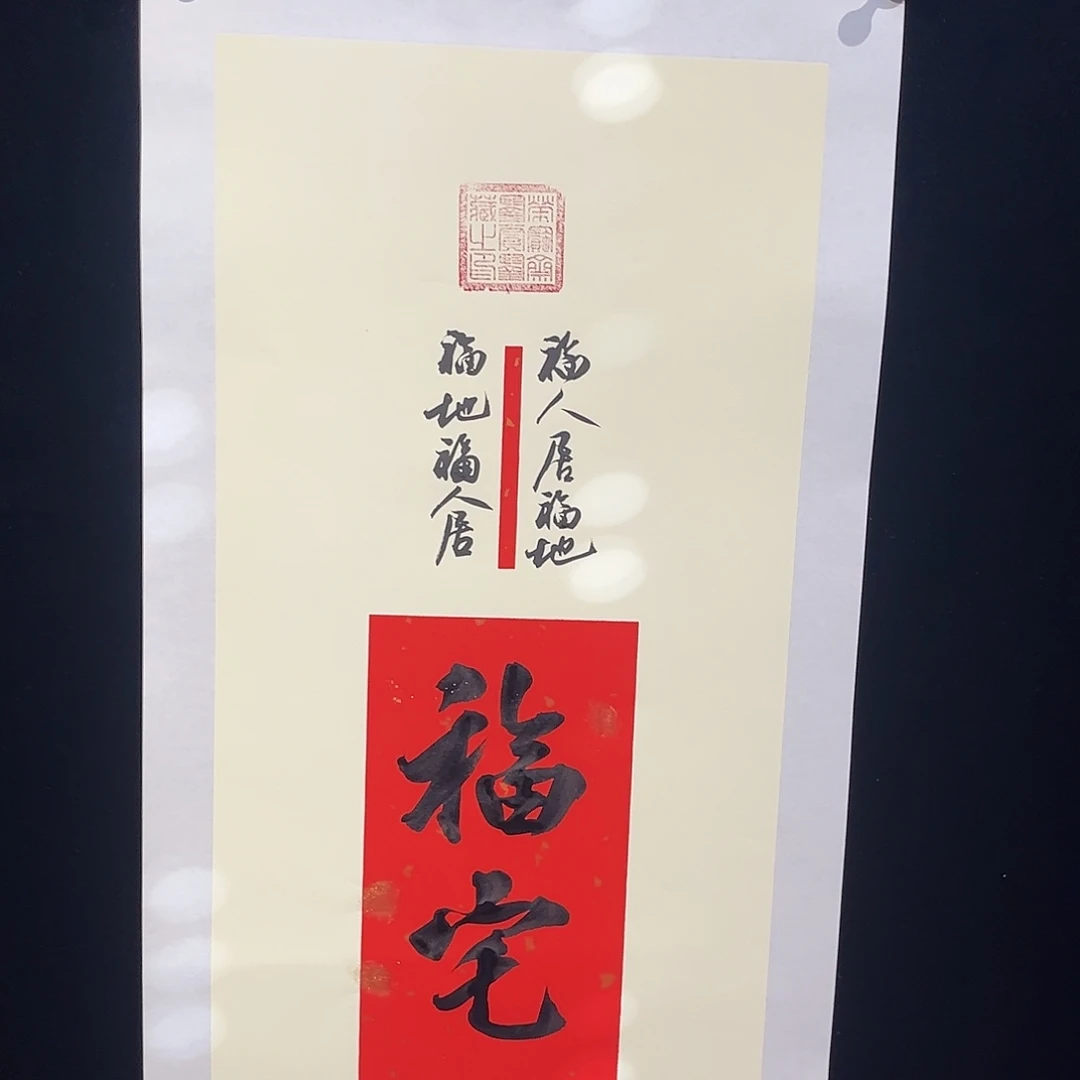 福人居福地
福地福人居
福宅